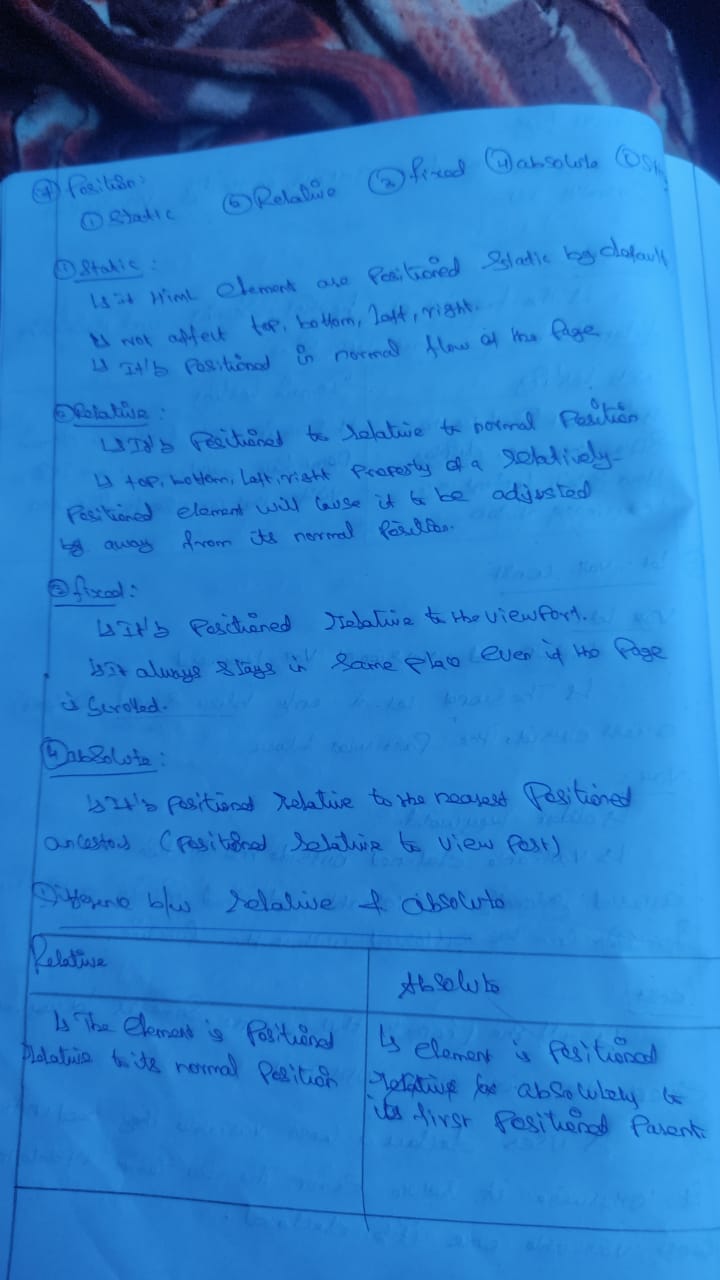 Position:
① Static ② Relative ③ fixed ④ absolute ⑤ St
① Static :
↳ it Html element are Positioned Static by default
↳ not affect top, bottom, left, right.
↳ It's Positioned in normal flow of the Page
② Relative :
↳ It's Positioned to relative to normal Position
↳ top, bottom, left, right Property of a relatively-
Positioned element will cause it to be adjusted
by away from its normal Position.
③ fixed :
↳ It's Positioned Relative to the view Port.
↳ It always stays in Same place even if the Page
is Scrolled.
④ absolute :
↳ It's Positiond relative to the nearest Positioned
ancestors (Positioned relative to view Port)
b/w relative & absolute
Relative
Absolute
↳ The Element is Positiond
relative to its normal Position
↳ element is Positioned
relative absolutely to
its first Positioned Parent.